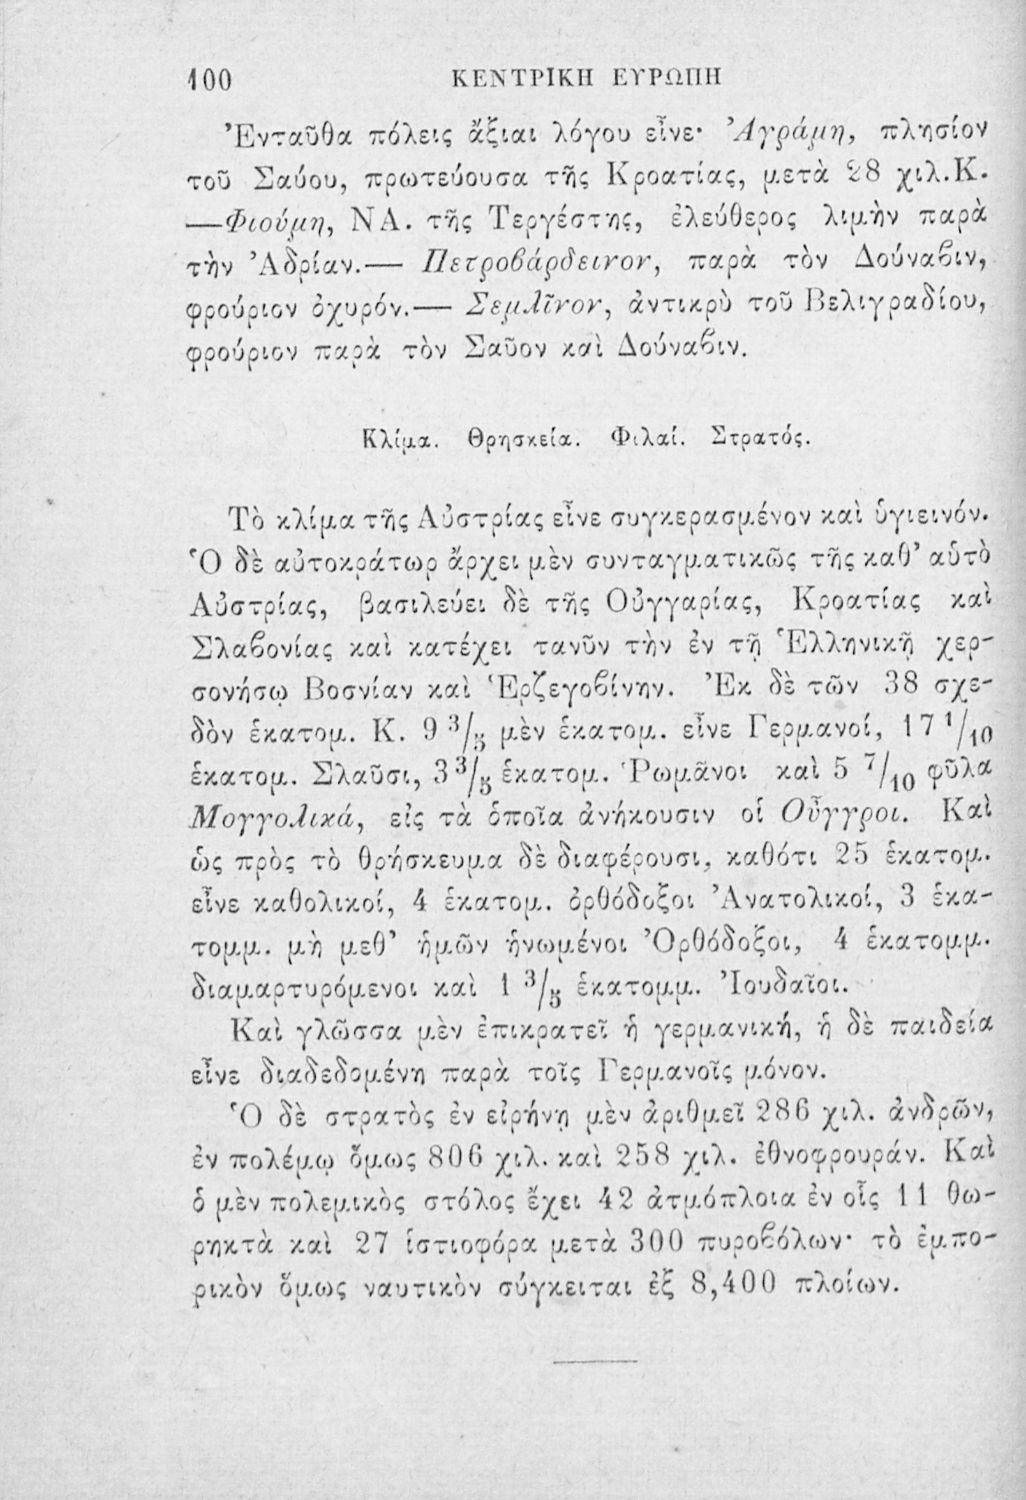 100 ΚΕΝΤΡΙΚΗ ΕΥΡΩΠΗ
Ἐνταῦθα πόλεις ἄξιαι λόγου εἶνε· Ἀγράμη, πλησίον
τοῦ Σαύου, πρωτεύουσα τῆς Κροατίας, μετὰ 28 χιλ.Κ.
—Φιούμη, ΝΑ. τῆς Τεργέστης, ἐλεύθερος λιμὴν παρὰ
τὴν Ἀδρίαν.— Πετροβάρδεινον, παρὰ τὸν Δούναβιν,
φρούριον ὀχυρόν.— Σεμλῖνον, ἀντικρὺ τοῦ Βελιγραδίου,
φρούριον παρὰ τὸν Σαῦον καὶ Δούναβιν.
Κλίμα. Θρησκεία. Φιλαί. Στρατός.
Τὸ κλίμα τῆς Αὐστρίας εἶνε συγκερασμένον καὶ ὑγιεινόν.
Ὁ δὲ αὐτοκράτωρ ἄρχει μὲν συνταγματικῶς τῆς καθ’ αὑτὸ
Αὐστρίας, βασιλεύει δὲ τῆς Οὐγγαρίας, Κροατίας καὶ
Σλαβονίας καὶ κατέχει τανῦν τὴν ἐν τῇ Ἑλληνικῇ χερ-
σονήσῳ Βοσνίαν καὶ Ἑρζεγοβίνην. Ἐκ δὲ τῶν 38 σχε-
δὸν ἑκατομ. Κ. 9 3/5 μὲν ἑκατομ. εἶνε Γερμανοί, 17 1/10
ἑκατομ. Σλαῦσι, 3 3/5 ἑκατομ. Ῥωμᾶνοι καὶ 5 7/10 φῦλα
Μογγολικά, εἰς τὰ ὁποῖα ἀνήκουσιν οἱ Οὖγγροι. Καὶ
ὡς πρὸς τὸ θρήσκευμα δὲ διαφέρουσι, καθότι 25 ἑκατομ.
εἶνε καθολικοί, 4 ἑκατομ. ὀρθόδοξοι Ἀνατολικοί, 3 ἑκα-
τομμ. μὴ μεθ’ ἡμῶν ἡνωμένοι Ὀρθόδοξοι, 4 ἑκατομμ.
διαμαρτυρόμενοι καὶ 1 3/5 ἑκατομμ. Ἰουδαῖοι.
Καὶ γλῶσσα μὲν ἐπικρατεῖ ἡ γερμανική, ἡ δὲ παιδεία
εἶνε διαδεδομένη παρὰ τοῖς Γερμανοῖς μόνον.
Ὁ δὲ στρατὸς ἐν εἰρήνῃ μὲν ἀριθμεῖ 286 χιλ. ἀνδρῶν,
ἐν πολέμῳ ὅμως 806 χιλ. καὶ 258 χιλ. ἐθνοφρουράν. Καὶ
ὁ μὲν πολεμικὸς στόλος ἔχει 42 ἀτμόπλοια ἐν οἷς 11 θω-
ρηκτὰ καὶ 27 ἱστιοφόρα μετὰ 300 πυροβόλων· τὸ ἐμπο-
ρικὸν ὅμως ναυτικὸν σύγκειται ἐξ 8,400 πλοίων.